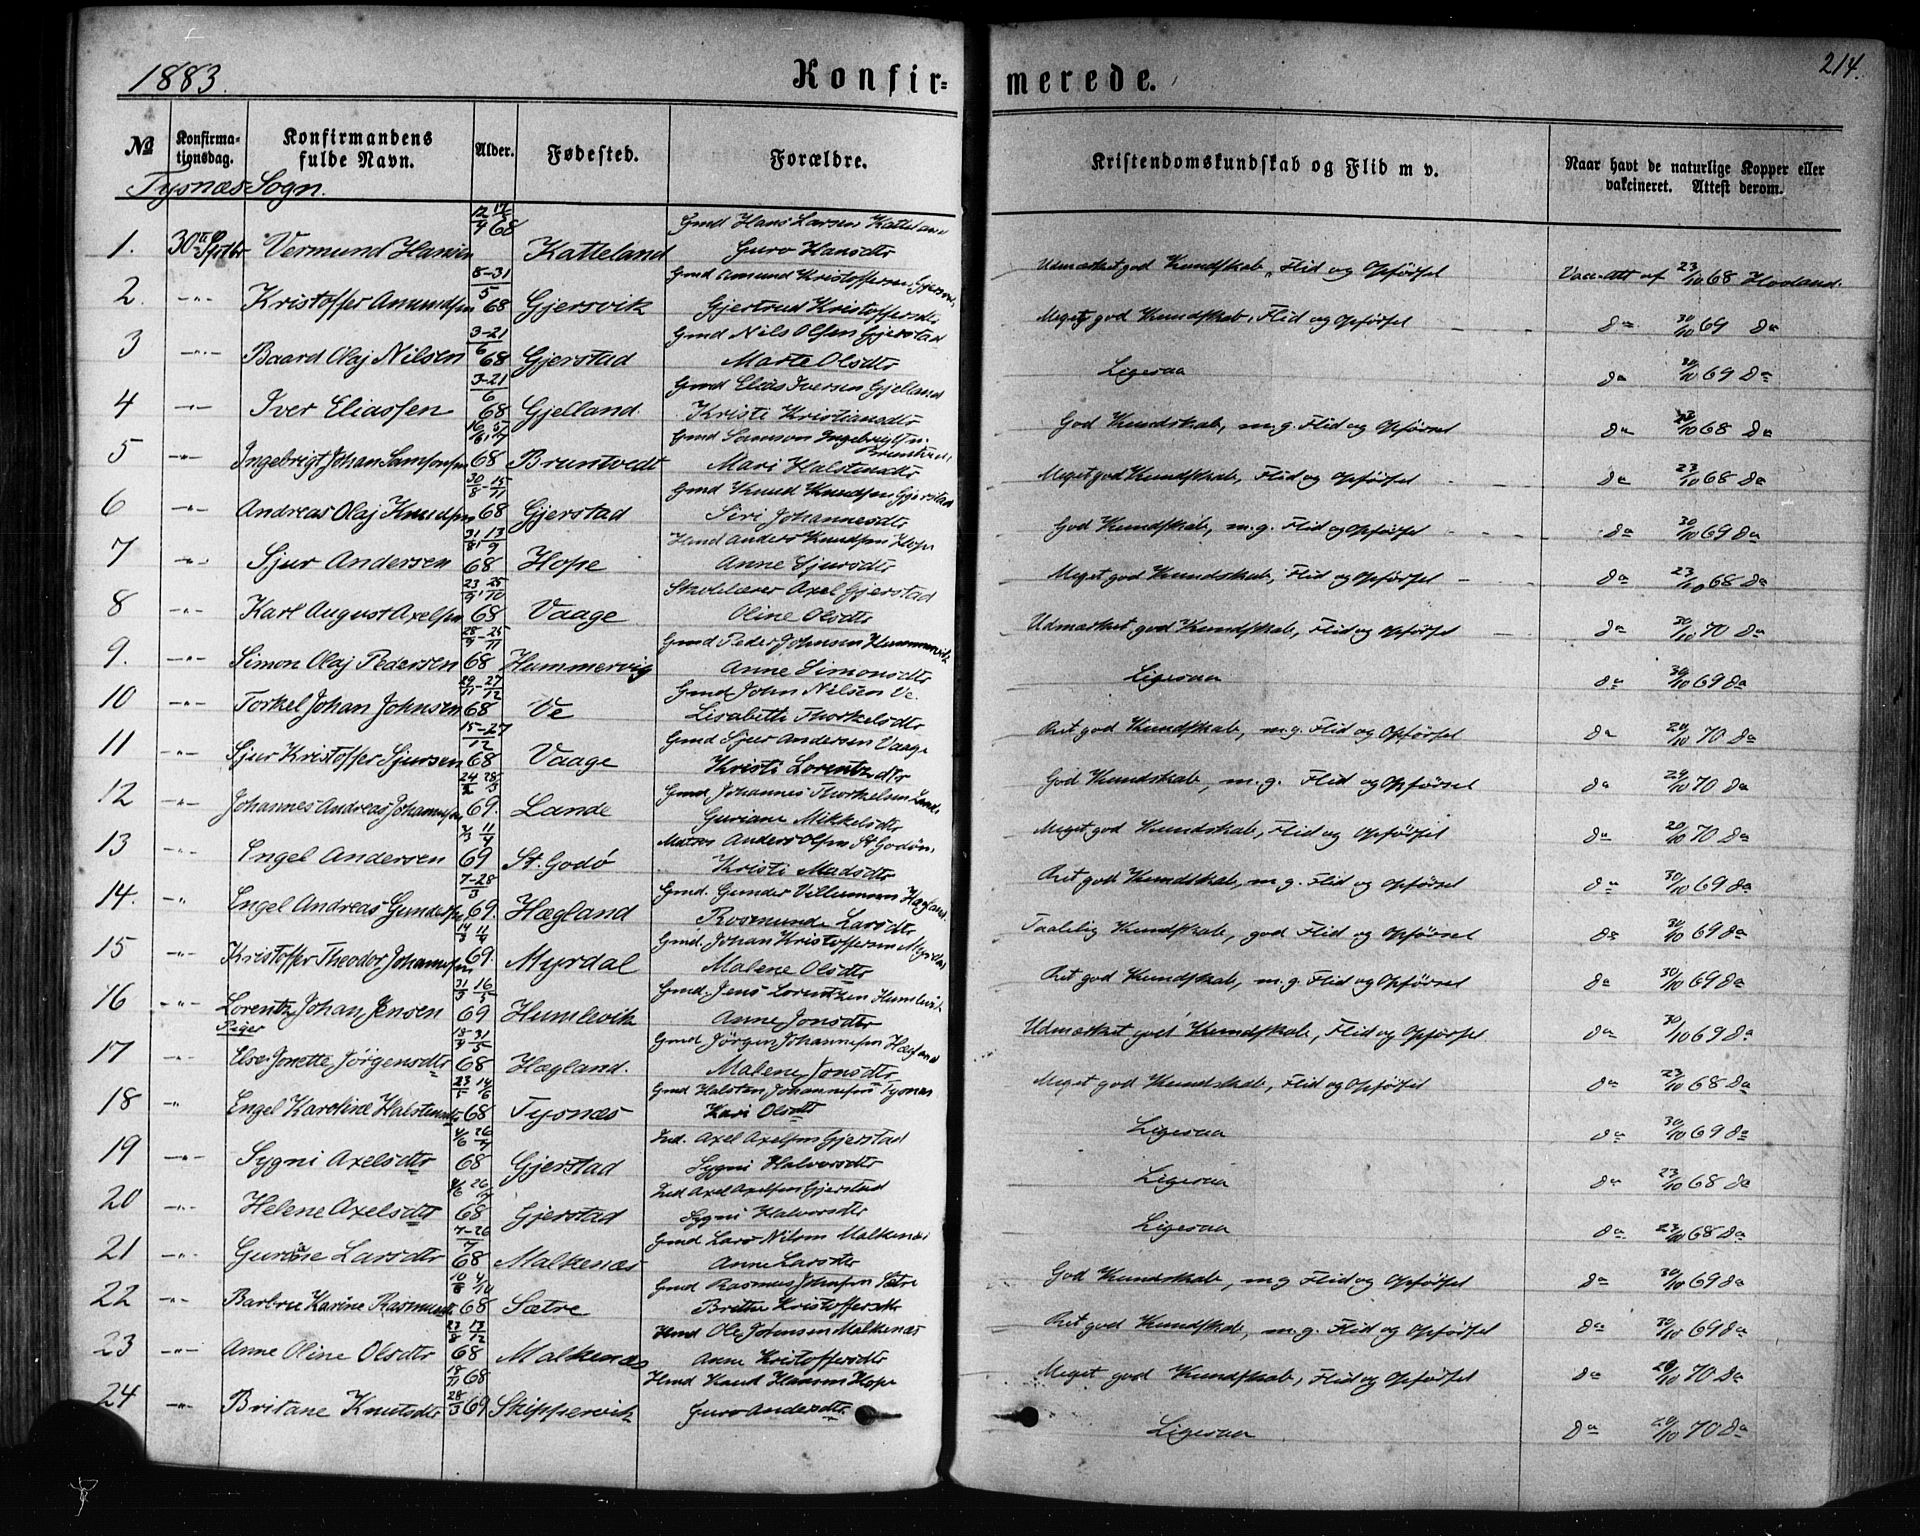 1883.
Konfir=
merede.
214.
No
Konfirma-
tionsdag.
Konfirmandens
fulde Navn.
Alder.
Fødested.
Forældre.
Kristendomskundskab og Flid m v.
Naar havt de naturlige Kopper eller
vakcineret. Attest derom.
Tysnæs Sogn.
1. 30te Septbr Vermund Hansen 12/4 17 68 Katteland Gmd Hans Larsen Katteland
Guro Hansdtr
Udmærket god Kundskab, Flid og Opførsel Vacc. Att af 23/10 68 Hovland.
2. -"- Kristoffer Amundsen 8-31/5 68 Gjersvik Gmd Amund Kristoffersen Gjersvik
Gjertrud Kristoffersdtr
Meget god Kundskab, Flid og Opførsel do 30/10 69 do
3 -"- Baard Olaj Nilsen 3-21/6 68 Gjerstad Gmd Nils Olsen Gjerstad
Marte Olsdtr
Ligesaa do 30/10 69 do
4 -"- Iver Eliassen 3-21/6 68 Gjelland Gmd Elias Iversen Gjelland
Kristi Kristiansdtr
God Kundskab, m.g. Flid og Opførsel do 23/10 68 do
5 -"- Ingebrigt Johan Samsonsen 68 Bruntvedt Gmd Samson Ingebrigtsen
Mari Halstensdtr
Meget god Kundskab, Flid og Opførsel do 23/10 68 do
6 -"- Andreas Olaj Knudsen 30/8-15/11 68 Gjerstad Gmd Knud Knudsen Gjerstad
Siri Johannesdtr
God Kundskab, m.g. Flid og Opførsel do 30/10 69 do
7 -"- Sjur Andersen 31/8 13/9 68 Hope Hmd Anders Knudsen Hope
Anne Sjursdtr
Meget god Kundskab, Flid og Opførsel do 23/10 68 do
8 -"- Karl August Axelsen 23/9 25/10 68 Vaage Skolelærer Axel Gjerstad
Oline Olsdtr
Udmærket god Kundskab, Flid og Opførsel do 30/10 70 do
9. -"- Simon Olaj Pedersen 28/9-25/11 68 Hummervig Gmd Peder Johnsen Hummervik
Anne Simonsdtr
Ligesaa do 30/10 69 do
10 -"- Torkel Johan Johnsen 29/11-27/12 68 Ve Gmd John Nilsen Ve
Lisabeth Thorkelsdtr
Ret god Kundskab, m.g. Flid og Opførsel do 20/10 70 do
11 -"- Sjur Kristoffer Sjursen 15-27/12 68 Vaage Gmd Sjur Andersen Vaage
Kristi Lorentzdtr
God Kundskab, m.g. Flid og Opførsel do 29/10 70 do
12 -"- Johannes Andreas Johannessen 69. Lande Gmd Johannes Thorkelsen Lande
Guriane Mikkelsdtr
Meget god Kundskab, Flid og Opførsel do 20/10 70 do
13 -"- Engel Andersen 69 St. Godø Anders Olsen St Godøen
Kristi Madsdtr
Ret god Kundskab, m.g. Flid og Opførsel do 30/10 69 do
14. -"- Engel Andreas Gundersen 7-28/3 69. Hægland Gmd. Gunder Villumsen Hægland.
Rosmunde Larsdtr
Taalelig Kundskab, god Flid og Opførsel do 30/10 69 do
15 -"- Kristoffer Theodor Johannsen 14/3 11/4 69. Myrdal Gmd. Johan Kristoffersen Myrdal
Malene Olsdtr
Ret god Kundskab, m.g. Flid og Opførsel do 30/10 69 do
16 -"- Lorentz Johan Jensen 31/3 16/5 69 Humlevik Gmd. Jens Lorentzen Humlevik
Anne Jonsdtr
Udmærket god Kundskab, Flid og Opførsel do 30/10 69 do
Piger
17 -"- Else Jonette Jörgensdtr 68 Hægland. Gmd, Jørgen Johannesen Hægland
Malene Jonsdtr
Meget god Kundskab, Flid og Opførsel do 23/10 68 do
18 -"- Engel Karoline Halstensdtr 23/5 14/6 68 Tysnæs Gmd Halsten Johannesen Tysnæs
Kari Olsdtr
Ligesaa do 30/10 69 do
19 -"- Sygni Axelsdtr 4/6 26/7 68 Gjerstad Ind. Axel Axelsen Gjerstad
Sygni Halvorsdtr
Ligesaa do 23/10 68 do
20 -"- Helene Axelsdtr 4/6 26/7 68 Gjerstad Ind Axel Axelsen Gjerstad
Sygni Halvorsdtr
Ligesaa do 23/10 68 do
21 -"- Guriane Larsdtr 7-26/7 68 Malkenæs Gmd Lars Nilsen Malkenæs
Anne Larsdtr
God Kundskab, m g Flid og Opførsel do 30/10 69 do
22 -"- Barbru Karine Rasmusdtr 10/8 4/10 68 Sætre Gmd Rasmus Johnsen Sætre
Britha Kristoffersdtr
Ret god Kundskab, m.g. Flid og Opførsel do 30/10 69 do
23 -"- Anne Oline Olsdtr 23/8 13/12 68 Malkenæs Hmd Ole Malkenæs
Anne Kristoffersdtr
Meget god Kundskab, Flid og Opførsel do 20/10 70 do
24 -"- Britane Knutsdtr 18/11 68 28/3 69 Skippervik Hmd Knud Hansen Hope
Guro Andersdtr
Ligesaa do 20/10 70 do